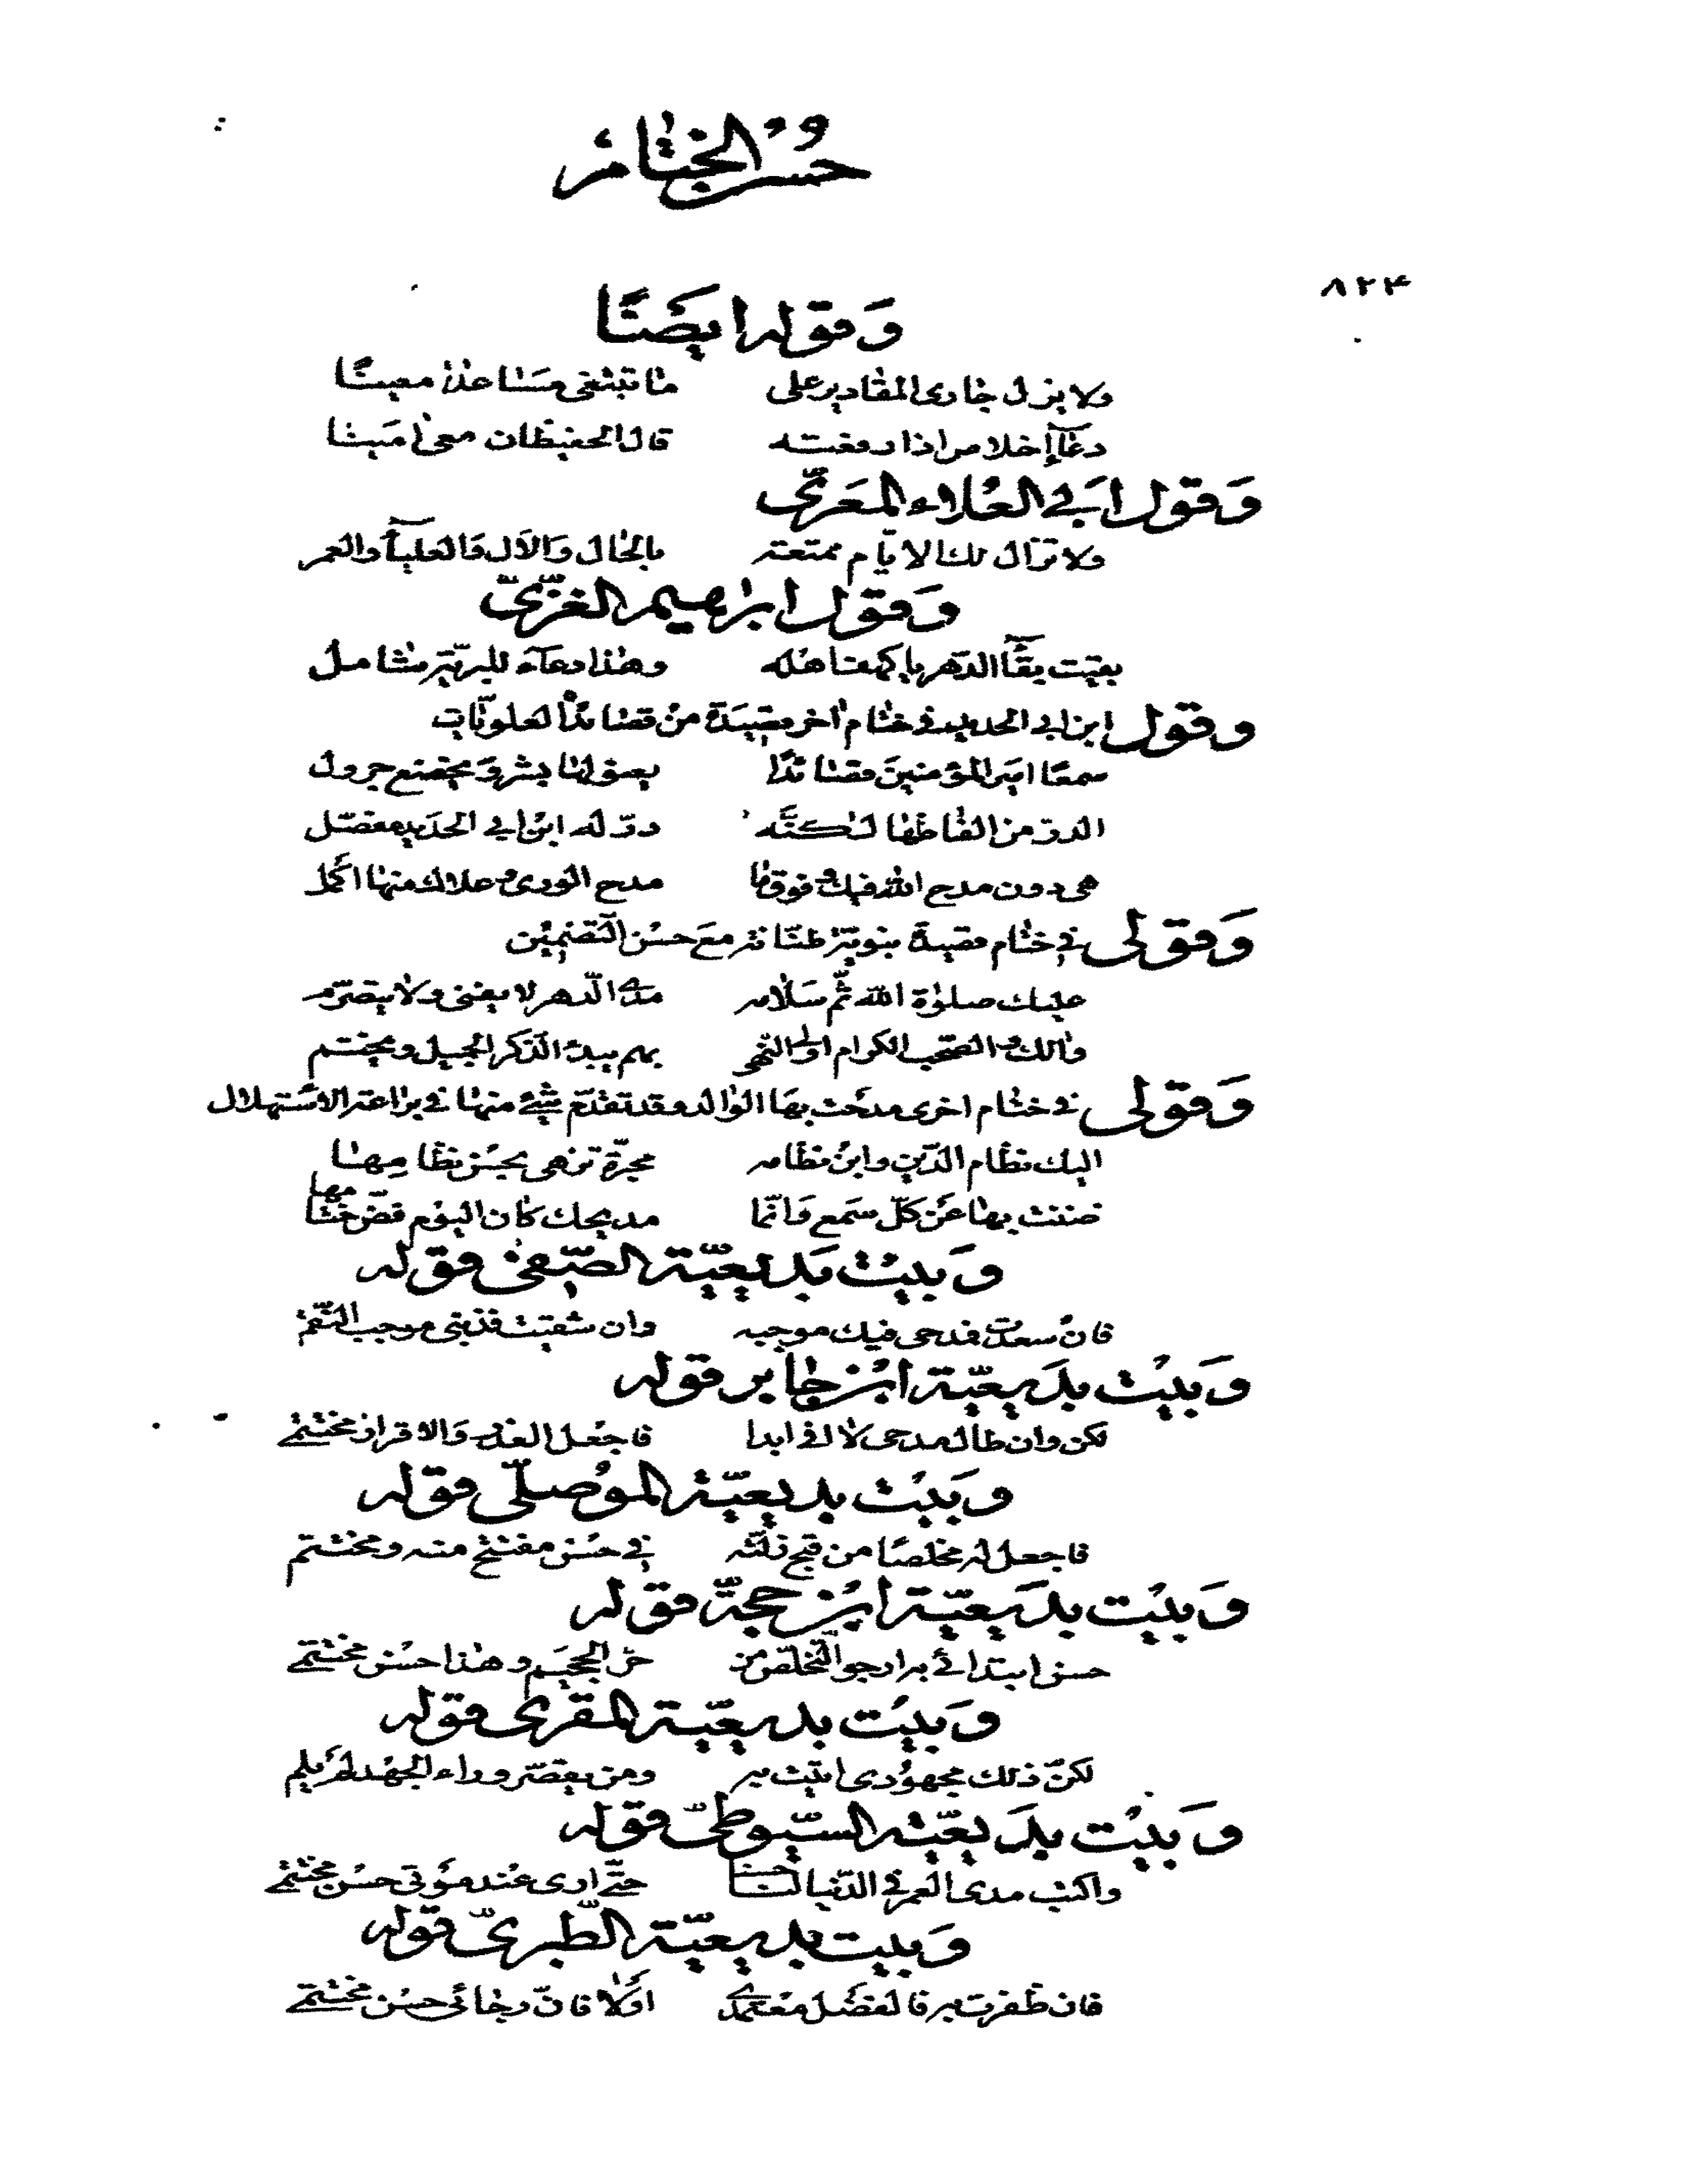 حُسْنُ الخِتٰام
٨٢۴
وَقوله ايضًا
ولا يزل جٰارى المقٰادير على مٰا تبتغى مسٰاعدًا معينًا
دعآء إخلاص اذا رفعته قال الحفيظان معى اٰمينا
وَقول ابى العُلاء المعَرّىّ
ولا تزال لك الايّام ممتعة بالحٰال وَالاٰل وَالعليآء والعمر
وَقول ابراهيم الغزّىّ
بقيت بقآء الدّهر يا كهف اهله وهٰذا دعآء للبريّة شامل
وقول ابن ابى الحديد فى ختٰام اٰخر قصيدة من قصٰائده العلويّات
سمعًا امير المؤمنين قصٰائدًا يعنو لهٰا بشر وَيخضع جرول
الدر من الفٰاظهٰا لٰكنّه درّ له ابن ابى الحديد مفصّل
هى دون مدح اللّٰه فيك وفوق مٰا مدح الورى وعلاك منهٰا اكمل
وَقولى فى ختٰام قصيدة نبويّة طنّانة معَ حسْن التّضمين
عليك صلوٰة اللّٰه ثمّ سَلامه مدى الدّهر لا يفنى ولا يتصرّم
واٰلك والصّحب الكرام اولى النّهى بهم يبدء الذّكر الجميل ويختم
وَقولى فى ختٰام اخرى مدحْت بهَا الوٰالد وقد تقدّم شئ منهٰا فى براعة الاسْتهلال
اليك نظٰام الدّين وابن نظٰامه مجرّة تزهى بحسْن نظٰامِهٰا
ضننت بهٰا عَن كلّ سمَع وَانّما مديحك كٰان اليوْم فضّ ختٰامها
وَبيت بَديعيّة الصّفىّ قوله
فان سعدت فمدحى فيك موجبه وان شقيت فذنبى موجب النّقم
وَبيْت بدَيعيّة ابْن جٰابر قوله
لكن وان طال مدحى لا افى ابدا فاجْعل العذر وَالاقرار مختتمى
وبَيْت بديعيّة الموْصلّى قوله
فاجعل له مخلصًا من قبح زلّته فى حسْن مفتتح منه ومختتم
وَبيْت بدَيعيّة ابْن حجّة قوله
حسن ابتدائى به ارجو التّخلّص من حرّ الجحيم وهٰذا حسْن مختتمى
وَبيْت بديعيّة المقرى قوله
لكنّ ذلك مجهوُدى اتيْت به ومن يقصّر وراء الجهْد لم يلم
وَبيْت بدَيعيّة السّيوطىّ قوله
واكتب مدى العمر فى الدّنيا لنا حسنا حتّى ارى عند موْتى حسْن مختتمى
وَبيت بديعيّة الطّبرىّ قوله
فان ظفرت به فالفضل معتمدى اوْ لا فانّ رجٰائى حسْن مختتمى